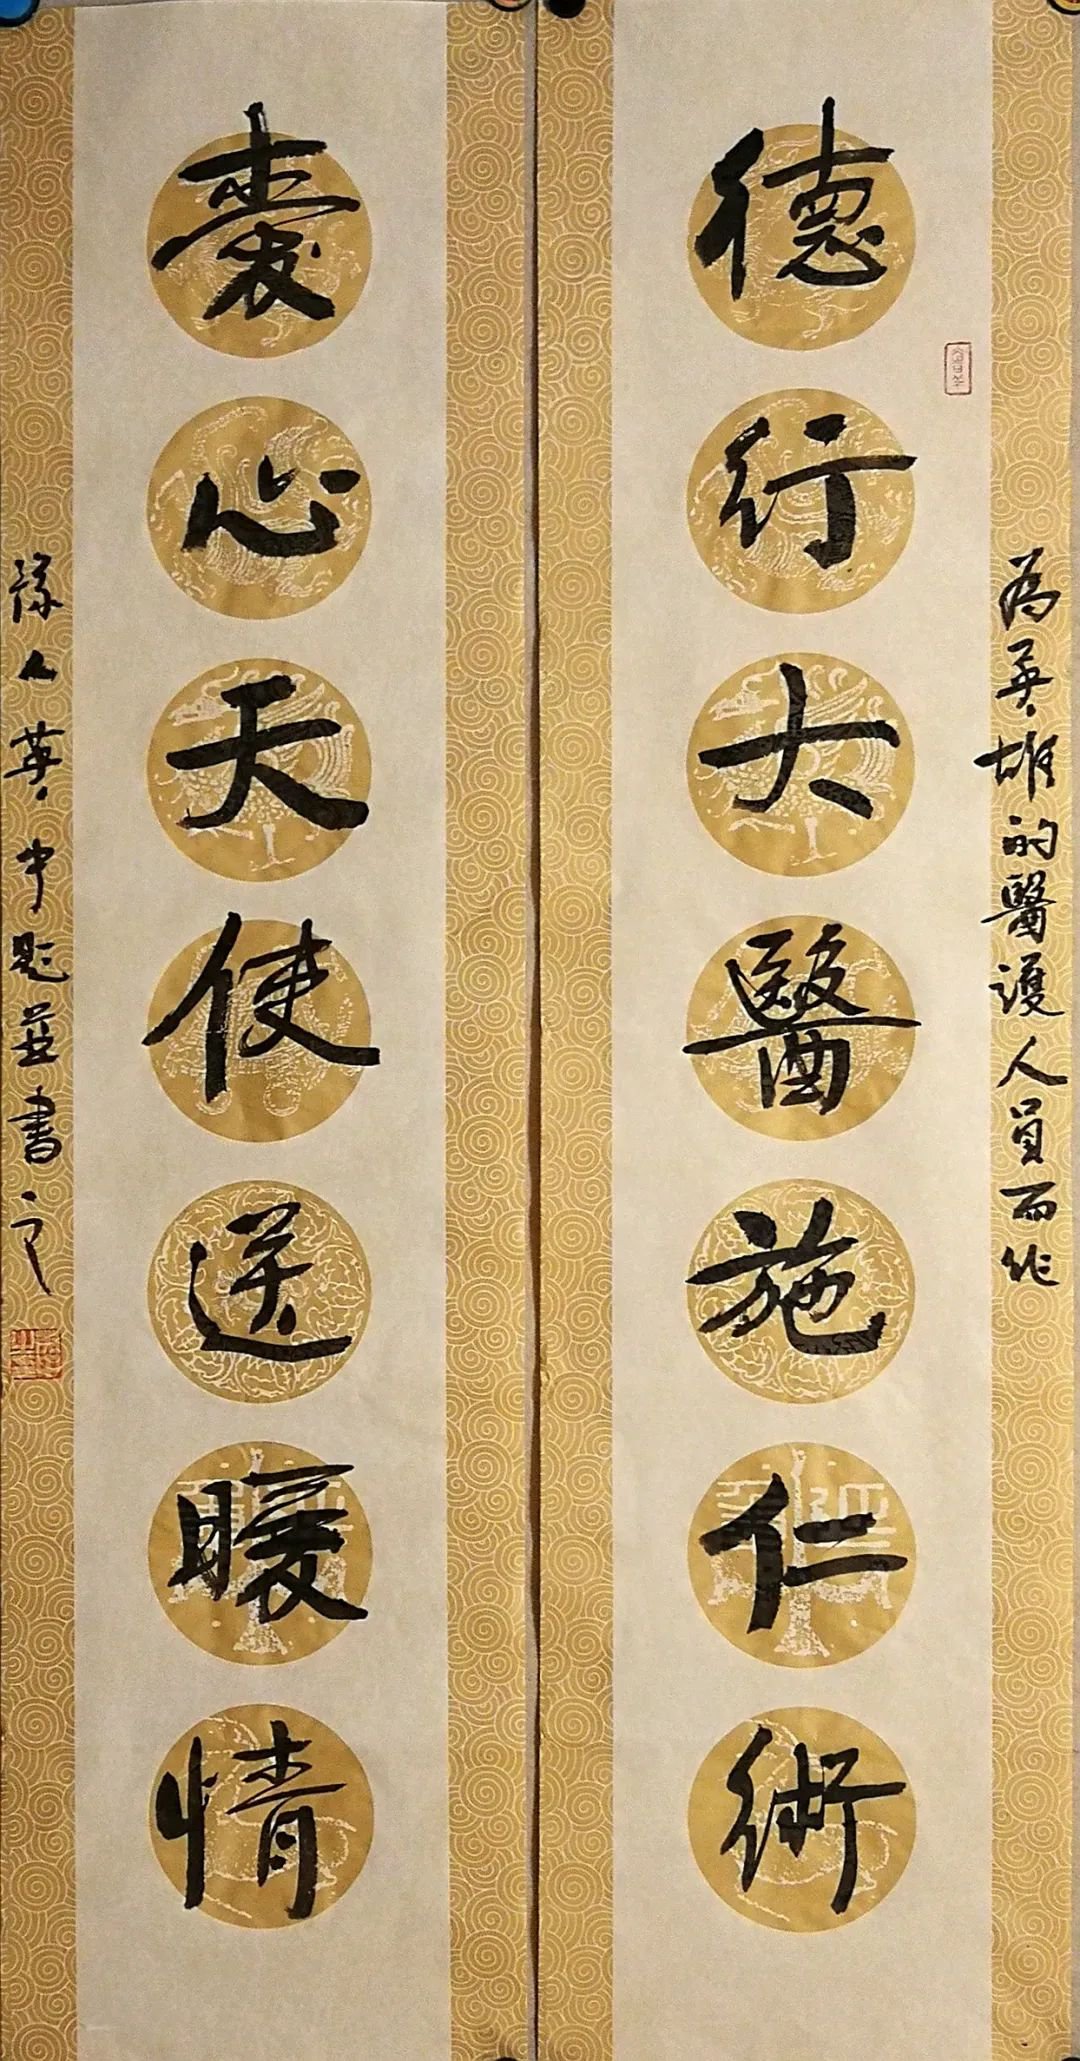 為英雄的醫護人員而作
德行大醫施仁術
心天使送暖情
豫人英中題並書之